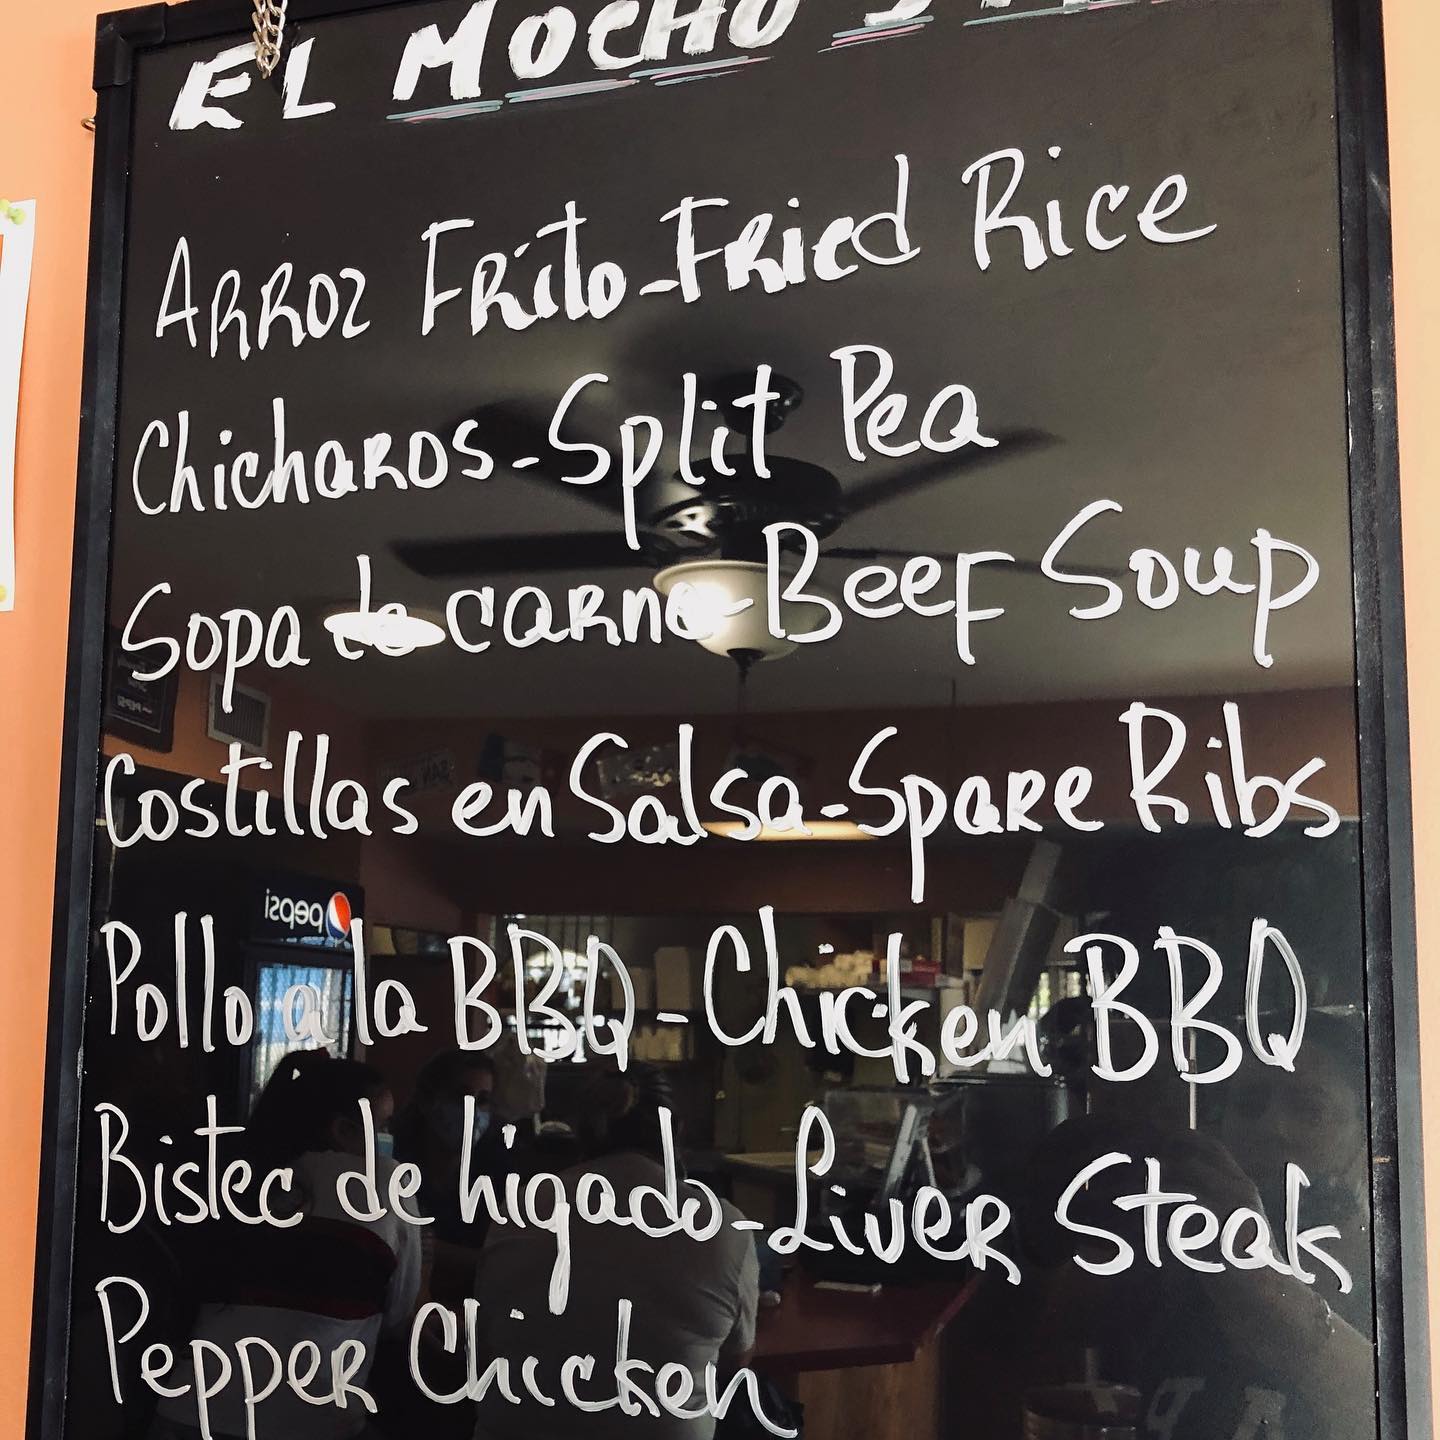 EL MOCHO
Arroz Frito-Fried Rice
Chicharos-Split Pea
Sopa de carne-Beef Soup
Costillas en Salsa-Spare Ribs
pepsi
Pollo a la BBQ-Chicken BBQ
Bistec de higado-Liver Steak
Pepper Chicken